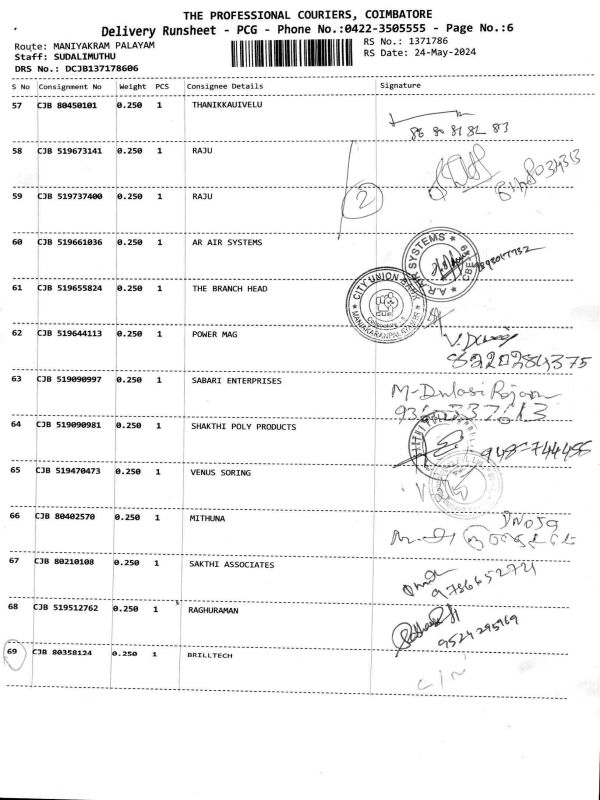 THE PROFESSIONAL COURIERS, COIMBATORE
Delivery Runsheet - PCG - Phone No.:0422-3505555 - Page No.:6
Route: MANIYAKRAM PALAYAM RS No.: 1371786
Staff: SUDALIMUTHU RS Date: 24-May-2024
DRS No.: DCJB137178606
S No Consignment No Weight PCS Consignee Details Signature
57 CJB 80450101 0.250 1 THANIKKAUIVELU
58 CJB 519673141 0.250 1 RAJU
59 CJB 519737400 0.250 1 RAJU 2
60 CJB 519661036 0.250 1 AR AIR SYSTEMS
61 CJB 519655824 0.250 1 THE BRANCH HEAD
CITY UNION BANK
62 CJB 519644113 0.250 1 POWER MAG
63 CJB 519090997 0.250 1 SABARI ENTERPRISES
64 CJB 519090981 0.250 1 SHAKTHI POLY PRODUCTS
65 CJB 519470473 0.250 1 VENUS SORING
66 CJB 80402570 0.250 1 MITHUNA
67 CJB 80210108 0.250 1 SAKTHI ASSOCIATES
68 CJB 519512762 0.250 1 RAGHURAMAN
9524295969
69 CJB 80358124 0.250 1 BRILLTECH